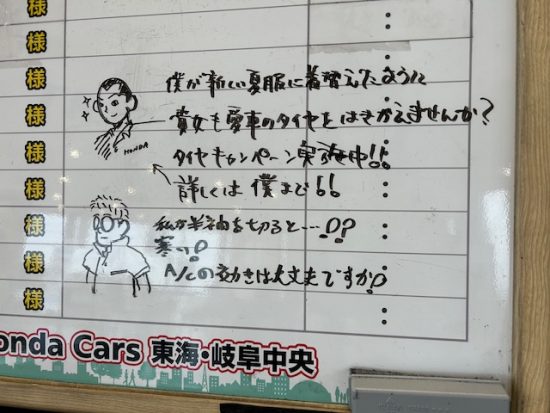 様
様
様
様
様
様
様
様
僕が新しい夏服に着替えたように
貴女も愛車のタイヤをはきかえませんか?
タイヤキャンペーン実施中!!
詳しくは僕まで!!
HONDA
私が半袖を切ると…!?
寒い!
A/cの効きは大丈夫ですか!
onda Cars 東海・岐阜中央